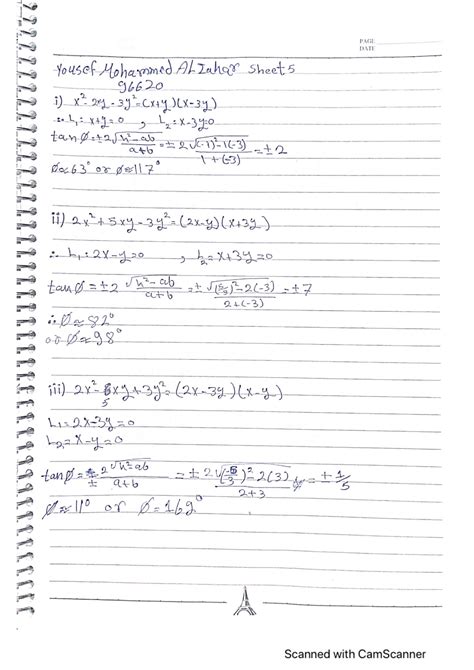 PAGE
DATE
Yousef Mohammed Al Zahar Sheet 5
96620
i) x² - 2xy - 3y² = (x+y)(x-3y)
∴ L₁: x+y=0 , L₂: x-3y=0
tan Ø = ±2√(h²-ab)/(a+b) = ±2√((-1)²-1(-3))/(1+(-3)) = ±2
Ø≈63° or Ø≈117°
ii) 2x²+5xy-3y² = (2x-y)(x+3y)
∴ L₁: 2x-y=0 , L₂=x+3y=0
tan Ø = ±2 √(h²-ab)/(a+b) = ±√((5/2)²-2(-3))/(2+(-3)) = ±7
∴ Ø≈82°
or Ø≈98°
iii) 2x²-5xy+3y² = (2x-3y)(x-y)
L₁=2x-3y=0
L₂=x-y=0
tan Ø = ± 2√(h²-ab)/(a+b) = ±2√((-5/2)²-2(3))/(2+3) = ±1/5
Ø≈11° or Ø=169°
Scanned with CamScanner